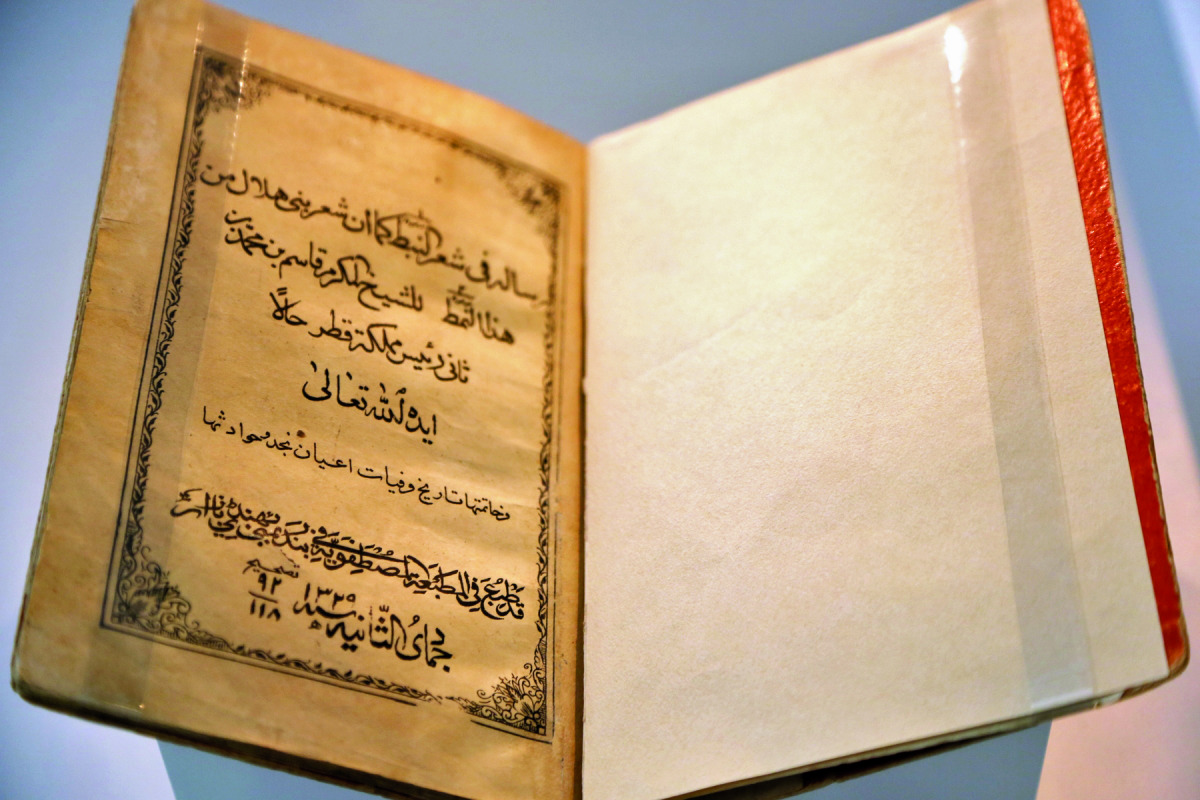 رساله في شعر النبط كما ان شعر بني هلال من
هذا النمط للشيخ المكرم قاسم بن محمد بن
ثاني رئيس مملكة قطر حالاً
ايده الله تعالى
وخاتمتها تاريخ وفيات اعيان نجد وحوادثها
قد طبع في المطبعة المصطفوية في بندر بمبي
جمادى الثانيه سنه ١٣٢٩
تصحيح
٩٢
١١٨